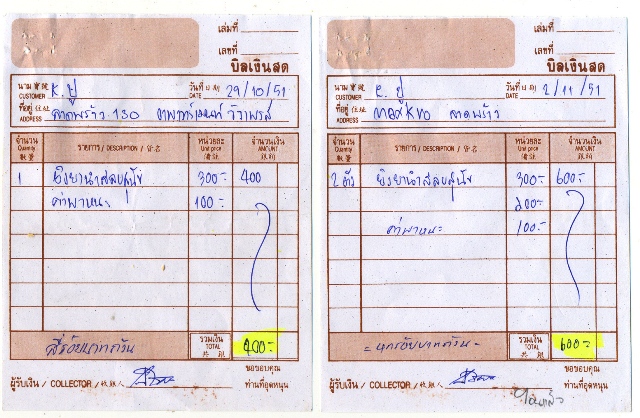 เล่มที่
เลขที่
บิลเงินสด
นาม
CUSTOMER K. ปู
วันที่
DATE 29/10/51
ที่อยู่
ADDRESS ลาดพร้าว 130
จำนวน Quantity
รายการ / DESCRIPTION
หน่วยละ Unit price
จำนวนเงิน AMOUNT
1 ยิงยานำสลบสุนัข 300- 400
ค่าพาหนะ 100-
สี่ร้อยบาทถ้วน รวมเงิน TOTAL 400-
ผู้รับเงิน / COLLECTOR
ขอขอบคุณ
ท่านที่อุดหนุน
เล่มที่
เลขที่
บิลเงินสด
นาม
CUSTOMER K. ปู
วันที่
DATE 2/11/51
ที่อยู่
ADDRESS ลาดพร้าว
จำนวน Quantity
รายการ / DESCRIPTION
หน่วยละ Unit price
จำนวนเงิน AMOUNT
2 ตัว ยิงยานำสลบสุนัข 300- 600-
200-
ค่าพาหนะ 100-
- หกร้อยบาทถ้วน - รวมเงิน TOTAL 600-
ผู้รับเงิน / COLLECTOR
ขอขอบคุณ
ท่านที่อุดหนุน